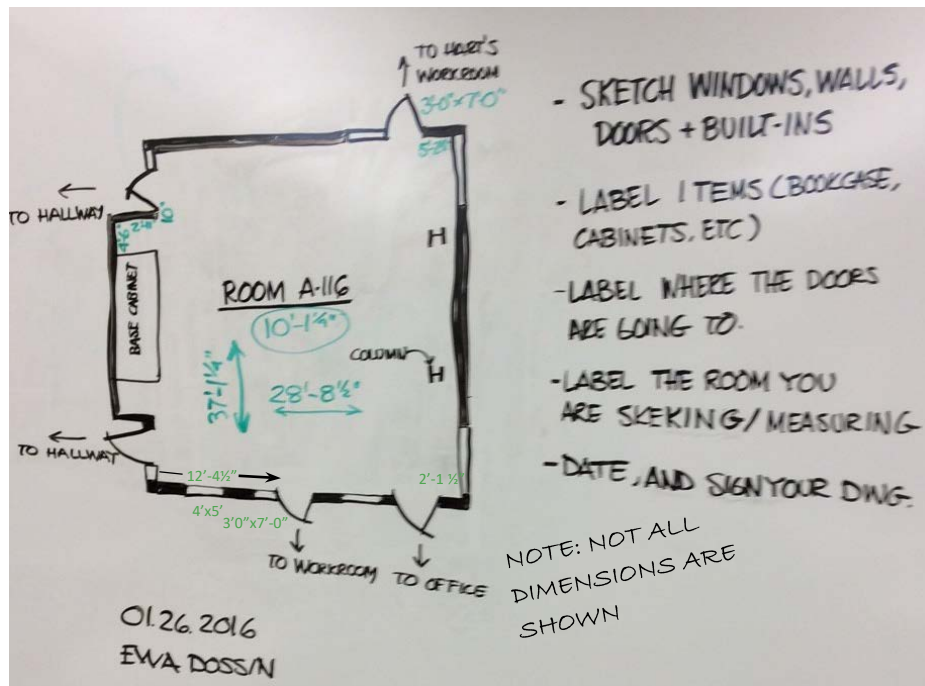 TO HART'S
WORKROOM
3'-0"x7'-0"
TO HALLWAY
10"
4'-6"
BASE CABINET
ROOM A-116
10'-1¼"
COLUMN
H
H
37'-1¼"
28'-8½"
TO HALLWAY
12'-4½"
2'-1 ½"
4'x5'
3'0"x7'-0"
TO WORKROOM
TO OFFICE
01.26.2016
EWA DOSSIN
- SKETCH WINDOWS, WALLS,
DOORS + BUILT-INS
- LABEL ITEMS (BOOKCASE,
CABINETS, ETC)
- LABEL WHERE THE DOORS
ARE GOING TO.
- LABEL THE ROOM YOU
ARE SKEKING/MEASURING
- DATE, AND SIGN YOUR DWG.
NOTE: NOT ALL
DIMENSIONS ARE
SHOWN